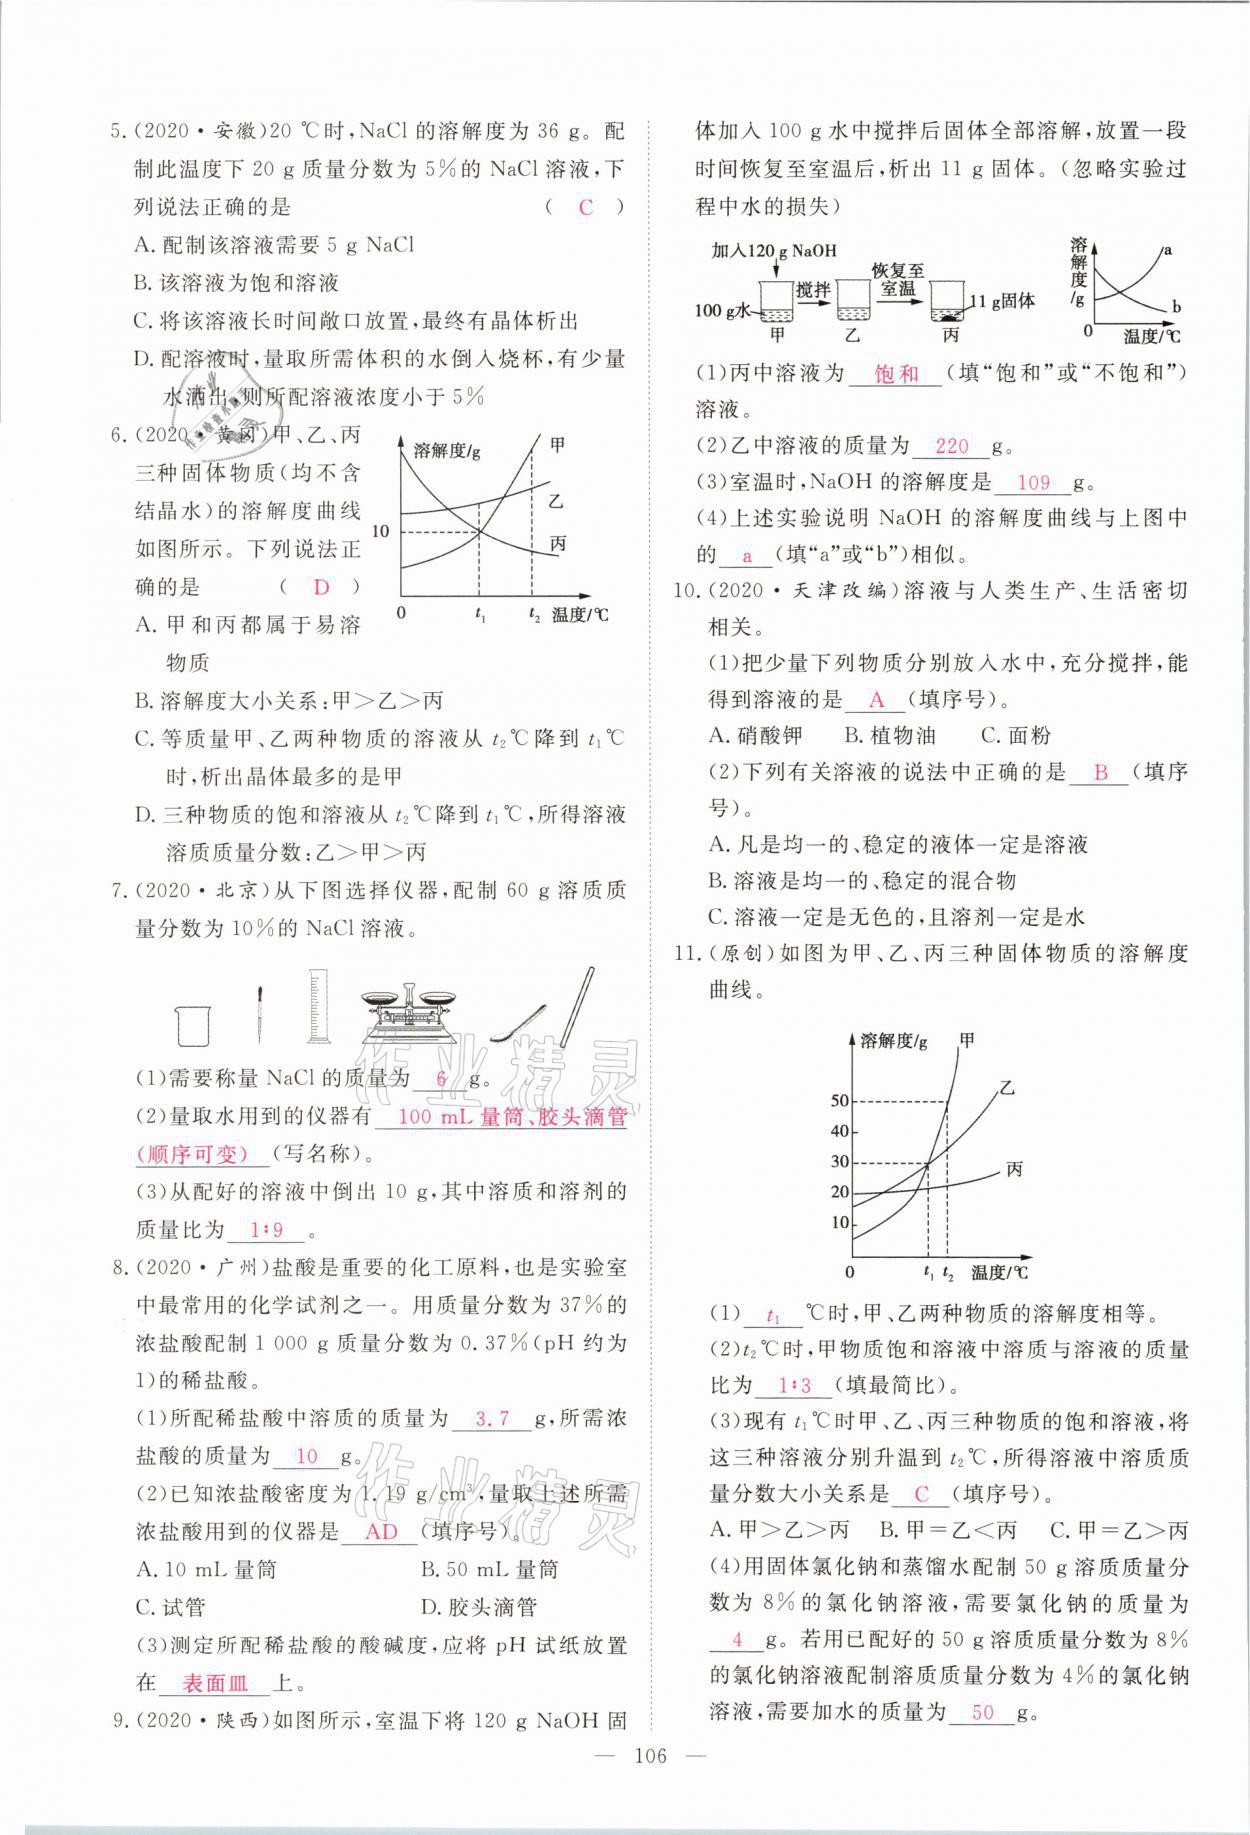 5.(2020·安徽)20 ℃时,NaCl的溶解度为36 g。配
制此温度下20 g质量分数为5%的NaCl溶液,下
列说法正确的是 ( C )
A.配制该溶液需要5 g NaCl
B.该溶液为饱和溶液
C.将该溶液长时间敞口放置,最终有晶体析出
D.配溶液时,量取所需体积的水倒入烧杯,有少量
水洒出,则所配溶液浓度小于5%
6.(2020·黄冈)甲、乙、丙
三种固体物质(均不含
结晶水)的溶解度曲线
如图所示。下列说法正
确的是 ( D )
溶解度/g
甲
乙
丙
10
0
t₁
t₂
温度/℃
A.甲和丙都属于易溶
物质
B.溶解度大小关系:甲>乙>丙
C.等质量甲、乙两种物质的溶液从t₂℃降到t₁℃
时,析出晶体最多的是甲
D.三种物质的饱和溶液从t₂℃降到t₁℃,所得溶液
溶质质量分数:乙>甲>丙
7.(2020·北京)从下图选择仪器,配制60 g溶质质
量分数为10%的NaCl溶液。
(1)需要称量NaCl的质量为 6 g。
(2)量取水用到的仪器有 100 mL量筒、胶头滴管
(顺序可变) (写名称)。
(3)从配好的溶液中倒出10 g,其中溶质和溶剂的
质量比为 1∶9 。
8.(2020·广州)盐酸是重要的化工原料,也是实验室
中最常用的化学试剂之一。用质量分数为37%的
浓盐酸配制1 000 g质量分数为0.37%(pH约为
1)的稀盐酸。
(1)所配稀盐酸中溶质的质量为 3.7 g,所需浓
盐酸的质量为 10 g。
(2)已知浓盐酸密度为1.19 g/cm³,量取上述所需
浓盐酸用到的仪器是 AD (填序号)。
A.10 mL量筒 B.50 mL量筒
C.试管 D.胶头滴管
(3)测定所配稀盐酸的酸碱度,应将pH试纸放置
在 表面皿 上。
9.(2020·陕西)如图所示,室温下将120 g NaOH固
体加入100 g水中搅拌后固体全部溶解,放置一段
时间恢复至室温后,析出11 g固体。(忽略实验过
程中水的损失)
加入120 g NaOH
100 g水
搅拌
恢复至
室温
11 g固体
甲 乙 丙
溶解度/g
a
b
0
温度/℃
(1)丙中溶液为 饱和 (填“饱和”或“不饱和”)
溶液。
(2)乙中溶液的质量为 220 g。
(3)室温时,NaOH的溶解度是 109 g。
(4)上述实验说明NaOH的溶解度曲线与上图中
的 a (填“a”或“b”)相似。
10.(2020·天津改编)溶液与人类生产、生活密切
相关。
(1)把少量下列物质分别放入水中,充分搅拌,能
得到溶液的是 A (填序号)。
A.硝酸钾 B.植物油 C.面粉
(2)下列有关溶液的说法中正确的是 B (填序
号)。
A.凡是均一的、稳定的液体一定是溶液
B.溶液是均一的、稳定的混合物
C.溶液一定是无色的,且溶剂一定是水
11.(原创)如图为甲、乙、丙三种固体物质的溶解度
曲线。
溶解度/g
甲
乙
丙
50
40
30
20
10
0
t₁ t₂ 温度/℃
(1) t₁ ℃时,甲、乙两种物质的溶解度相等。
(2)t₂℃时,甲物质饱和溶液中溶质与溶液的质量
比为 1∶3 (填最简比)。
(3)现有t₁℃时甲、乙、丙三种物质的饱和溶液,将
这三种溶液分别升温到t₂℃,所得溶液中溶质质
量分数大小关系是 C (填序号)。
A.甲>乙>丙 B.甲=乙<丙 C.甲=乙>丙
(4)用固体氯化钠和蒸馏水配制50 g溶质质量分
数为8%的氯化钠溶液,需要氯化钠的质量为
4 g。若用已配好的50 g溶质质量分数为8%
的氯化钠溶液配制溶质质量分数为4%的氯化钠
溶液,需要加水的质量为 50 g。
— 106 —
作业精灵
作业精灵